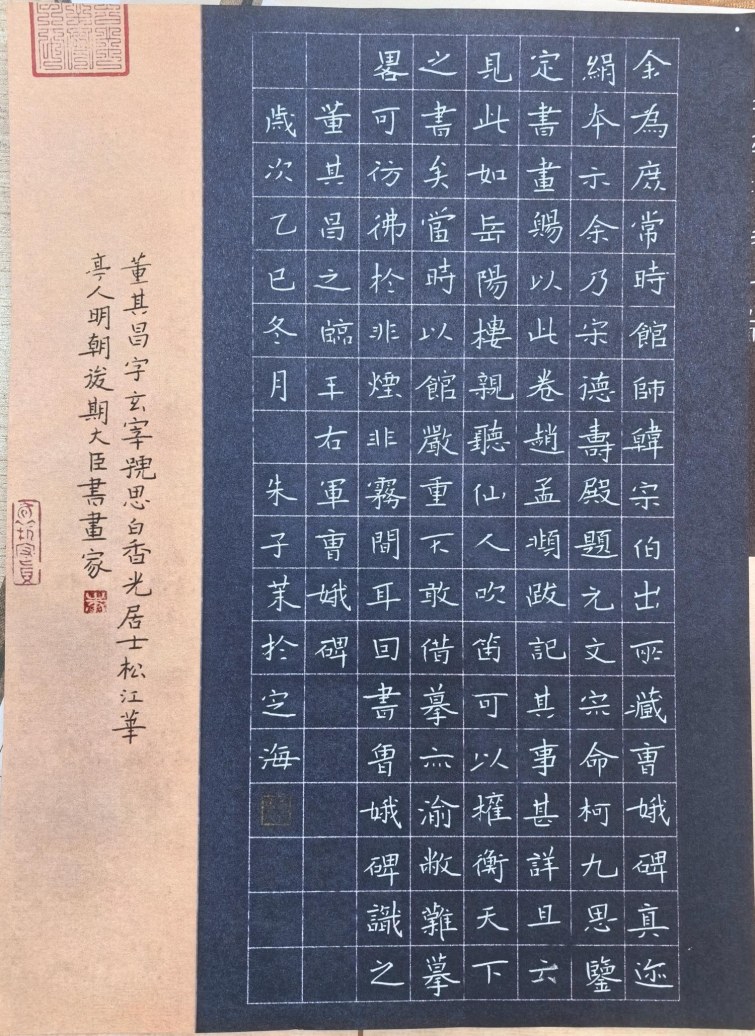 余為庶常時館師韓宗伯出所藏曹娥碑真迹
絹本示余乃宋德壽殿題元文宗命柯九思鑒
定書畫賜以此卷趙孟頫跋記其事甚詳且云
見此如岳陽樓親聽仙人吹笛可以權衡天下
之書矣當時以館嚴重不敢借摹亦渝敝難摹
畧可彷彿於非煙非霧間耳回書曹娥碑識之
董其昌之臨王右軍曹娥碑
歲次乙巳冬月 朱子茉於定海
董其昌字玄宰號思白香光居士松江華
亭人明朝後期大臣書畫家